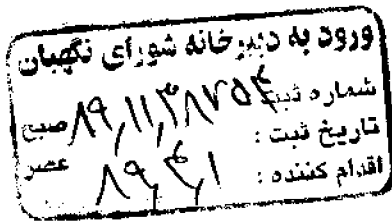 ورود به دبیرخانه شورای نگهبان
شماره ثبت: صبح
تاریخ ثبت: ۸۹,۴,۱ عصر
اقدام کننده: